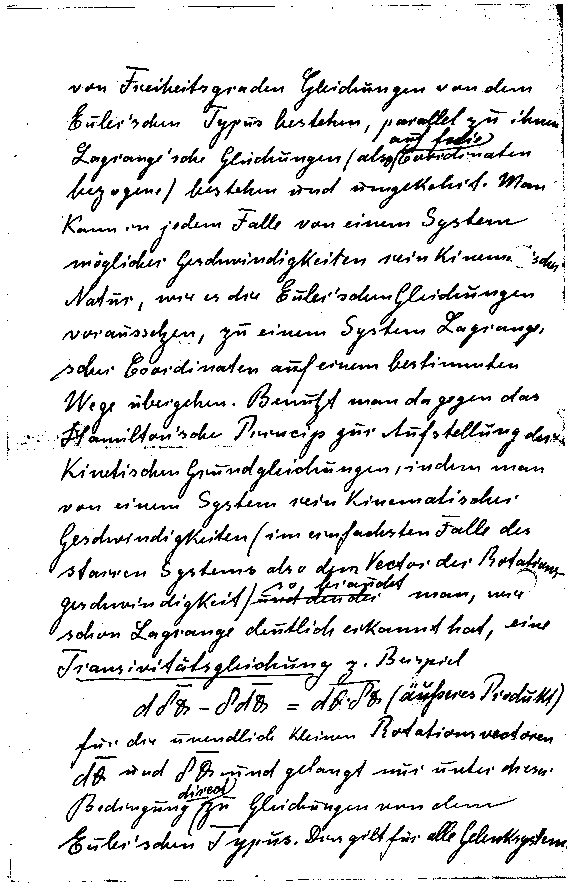 von Freiheitsgraden Gleichungen von dem
Euler'schen Typus bestehen, parallel zu ihnen
auf freie
Lagrange'sche Gleichungen (also Coordinaten
bezogene) bestehen und umgekehrt. Man
kann in jedem Falle von einem System
möglicher Geschwindigkeiten rein kinem 'scher
Natur, wie es die Euler'schen Gleichungen
voraussetzen, zu einem System Lagrange'
scher Coordinaten auf einem bestimmten
Wege übergehen. Benutzt man dagegen das
Hamilton'sche Princip zur Aufstellung der
kinetischen Grundgleichungen, indem man
von einem System rein kinematischer
Geschwindigkeiten (im einfachsten Falle des
starren Systems also dem Vector der Rotations-
so, braucht
geschwindigkeit) man, wie
schon Lagrange deutlich erkannt hat, eine
Transivitätsgleichung z. Beispiel
(äußeres Produkt)
für die unendlich kleinen Rotationsvectoren
und und gelangt nur unter dieser
direct
Bedingung zu Gleichungen von dem
Euler'schen Typus. Dies gilt für alle Gelenksysteme.